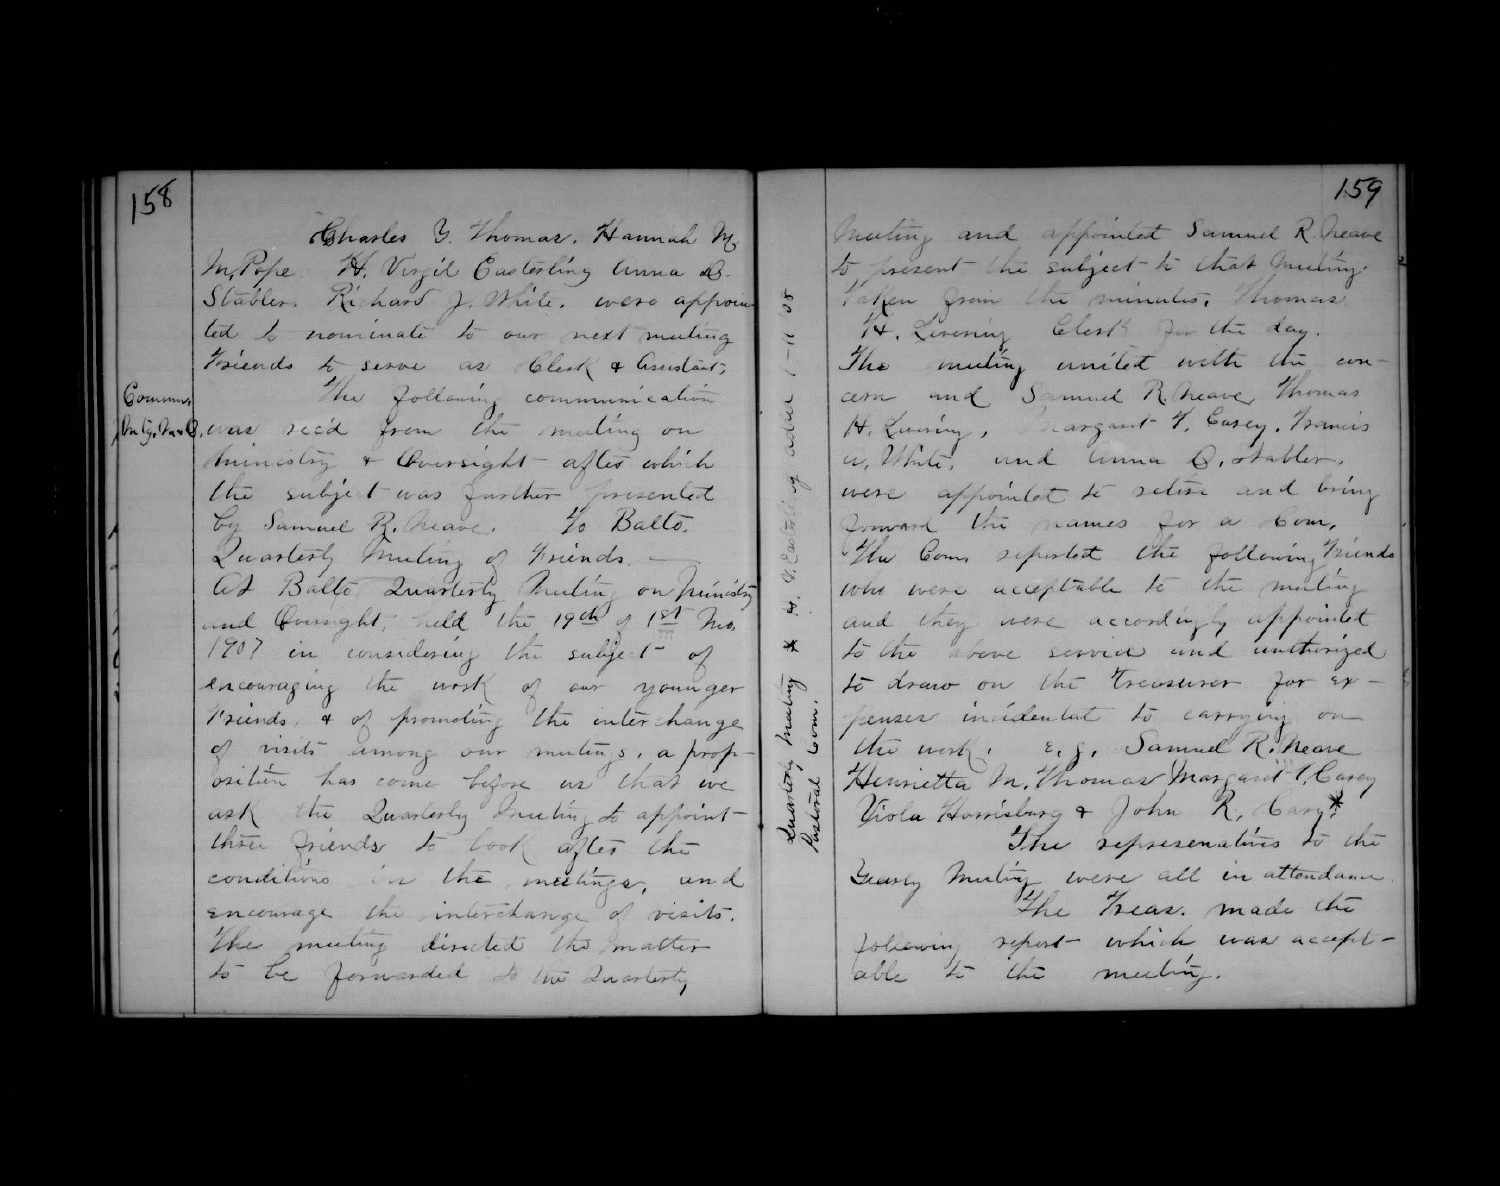 158
Charles Y. Thomas. Hannah M.
M. Pope H. Virgil Easterling Anna B.
Stabler. Richard J. White. were appoin
ted to nominate to our next meeting
Friends to serve as Clerk & Assistant.
The following communication
Commun.
Mtg. M & O.
was rec'd from the meeting on
Ministry & Oversight after which
the subject was further presented
by Samuel R. Neave. To Balto.
Quarterly Meeting of Friends. —
At Balto Quarterly Meeting on Ministry
and Oversight, held the 19th of 1st Mo.
1907 in considering the subject of
encouraging the work of our younger
Friends. & of promoting the interchange
of visits among our meetings, a prop-
osition has come before us that we
ask the Quarterly Meeting to appoint
three friends to look after the
conditions in the meetings, and
encourage the interchange of visits.
The meeting directed the matter
to be forwarded to the Quarterly
159
Meeting and appointed Samuel R. Neave
to present the subject to that Meeting.
Taken from the minutes, Thomas
H. Levering Clerk for the day.
The meeting united with the con-
cern and Samuel R. Neave, Thomas
H. Levering, Margaret T. Carey, Francis
A. White, and Anna B. Stabler.
were appointed to retire and bring
forward the names for a Com.
The Com. reported the following Friends
who were acceptable to the meeting
and they were accordingly appointed
to the above service and authorized
to draw on the Treasurer for ex-
penses incidental to carrying on
the work. e.g. Samuel R. Neave
Henrietta M. Thomas Margaret T. Carey
Viola Harrisburg & John R. Cary*
The represenatives to the
Yearly Meeting were all in attendance.
The Treas. made the
following report which was accept-
able to the meeting.
Quarterly Meeting * H. V. Easterling added 1-11 '08
Pastoral Com.